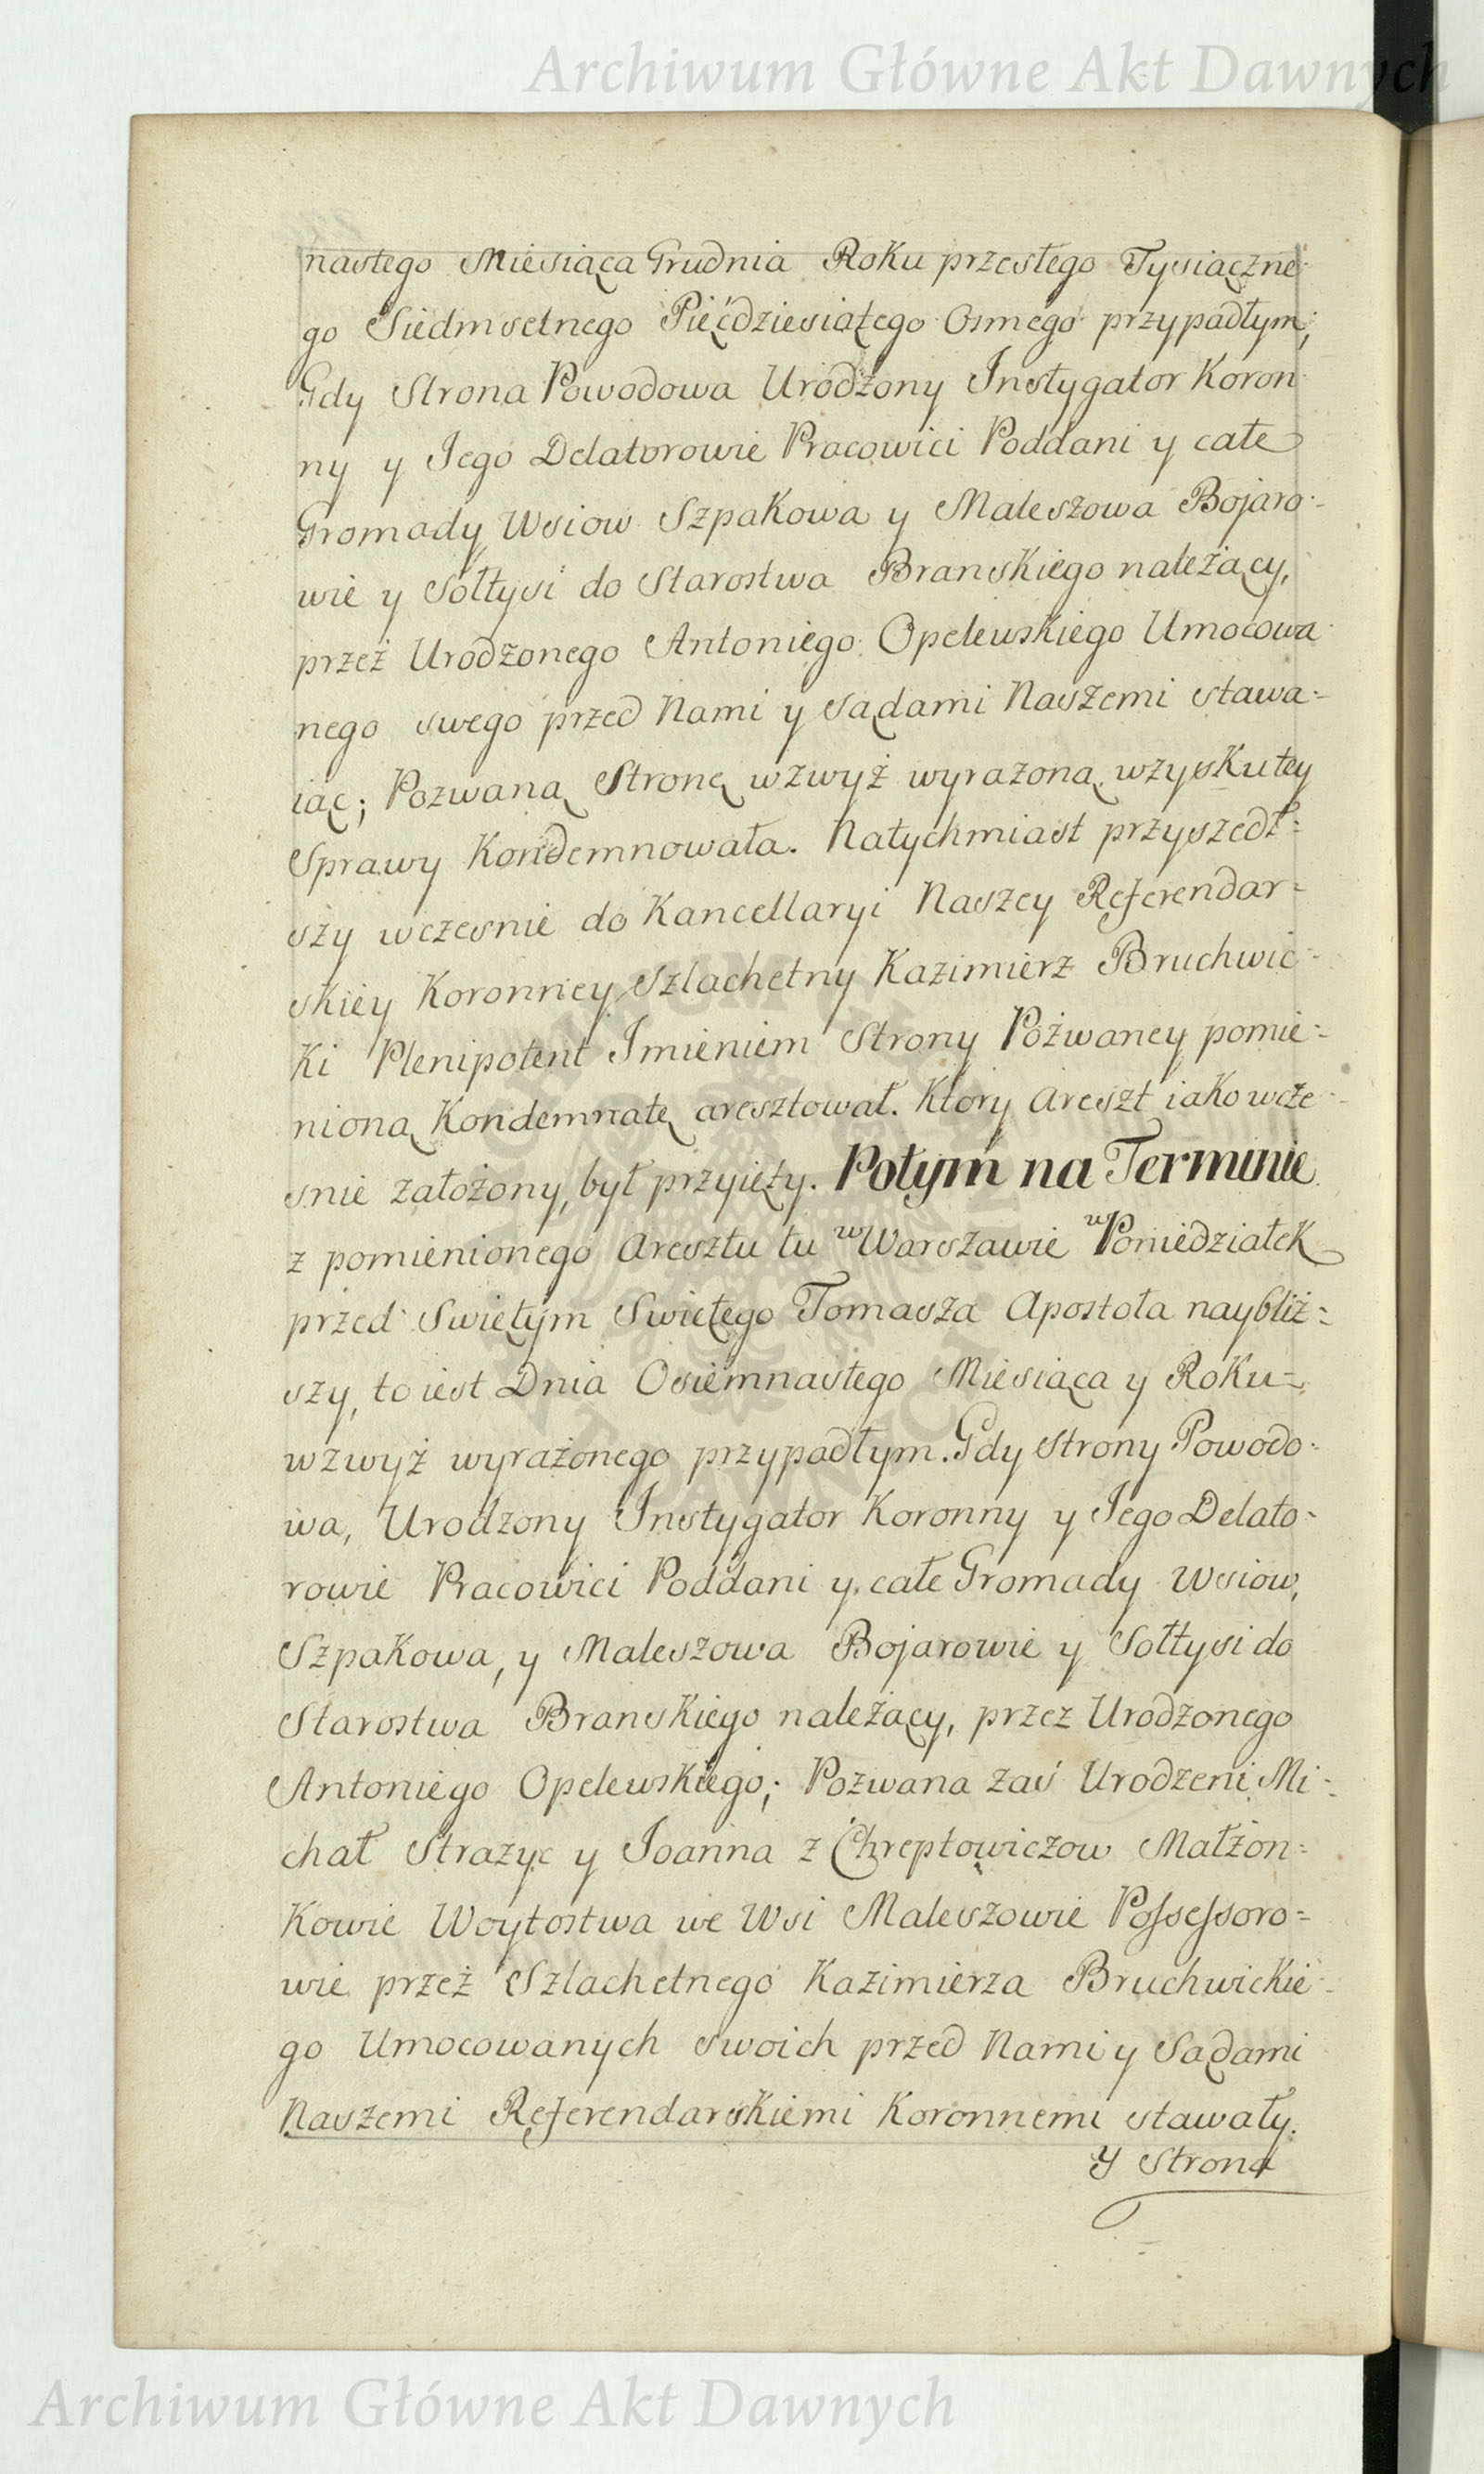 Archiwum Główne Akt Dawnych
nastego Miesiąca Grudnia Roku przeszłego Tysiączne-
go Siedmsetnego Pięćdziesiątego Osmego przypadłym,
Gdy Strona Powodowa Urodzony Instygator Koron
ny y Jego Delatorowie Pracowici Poddani y całe
Gromady Wsiow Szpakowa y Maleszowa Bojaro-
wie y Sołtysi do Starostwa Branskiego należący,
przeż Urodzonego Antoniego Opelewskiego Umocowa
nego swego przed Nami y Sądami Naszemi stawa-
iąc; Pozwaną Stronę wzwyż wyrażoną wzyskutey
Sprawy Kondemnowała. Natychmiast przyszedł=
szy wczesnie do Kancellaryi Naszey Referendar=
skiey Koronney Szlachetny Kazimierz Bruchwic-
ki Plenipotent Imieniem Strony Pożwaney pomie-
nioną Kondemnatę aresztował. Ktory Areszt iako wcze-
snie założony, był przyięty. Potym na Terminie
z pomienionego Aresztu tu w Warszawie w Poniedziałek
przed Swiętym Swiętego Tomasza Apostoła naybliż=
szy, to iest Dnia Osiemnastego Miesiąca y Roku=
wzwyż wyrażonego przypadłym. Gdy Strony Powodo-
wa, Urodzony Instygator Koronny y Jego Delato-
rowie Pracowici Poddani y całe Gromady Wsiow,
Szpakowa, y Maleszowa Bojarowie y Sołtysi do
Starostwa Branskiego należący, przez Urodzonego
Antoniego Opelewskiego; Pozwana zaś Urodzeni Mi-
chał Strażyc y Joanna z Chreptowiczow Małżon=
kowie Woytostwa we Wsi Maleszowie Possessoro=
wie przeż Szlachetnego Kazimierza Bruchwickie-
go Umocowanych swoich przed Nami y Sądami
Naszemi Referendarskiemi Koronnemi stawały.
y Strona
Archiwum Główne Akt Dawnych